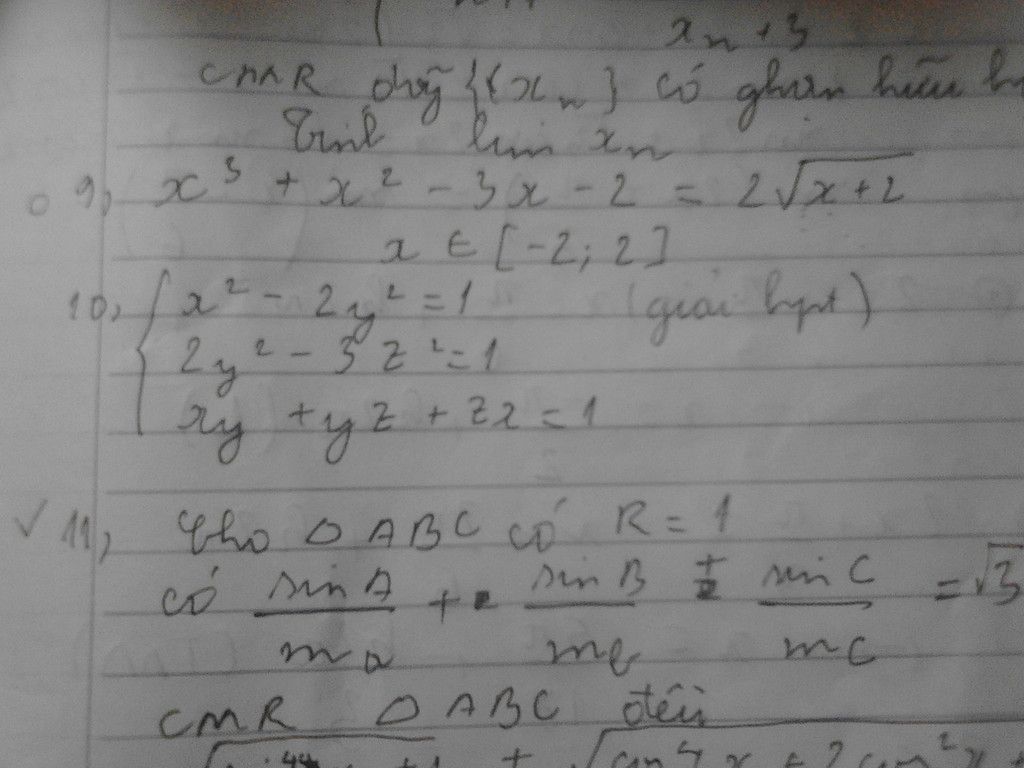 xₙ + 3
CMR dãy {(xₙ} có ghạn hữu h
Tính lim xₙ
9, x³ + x² - 3x - 2 = 2√(x+2)
x ∈ [-2; 2]
10, { x² - 2y² = 1 (giải hpt)
2y² - 3z² = 1
xy + yz + zx = 1
11, Cho △ABC có R = 1
có sin A / mₐ + sin B / m_b + sin C / m_C = √3
CMR △ABC đều